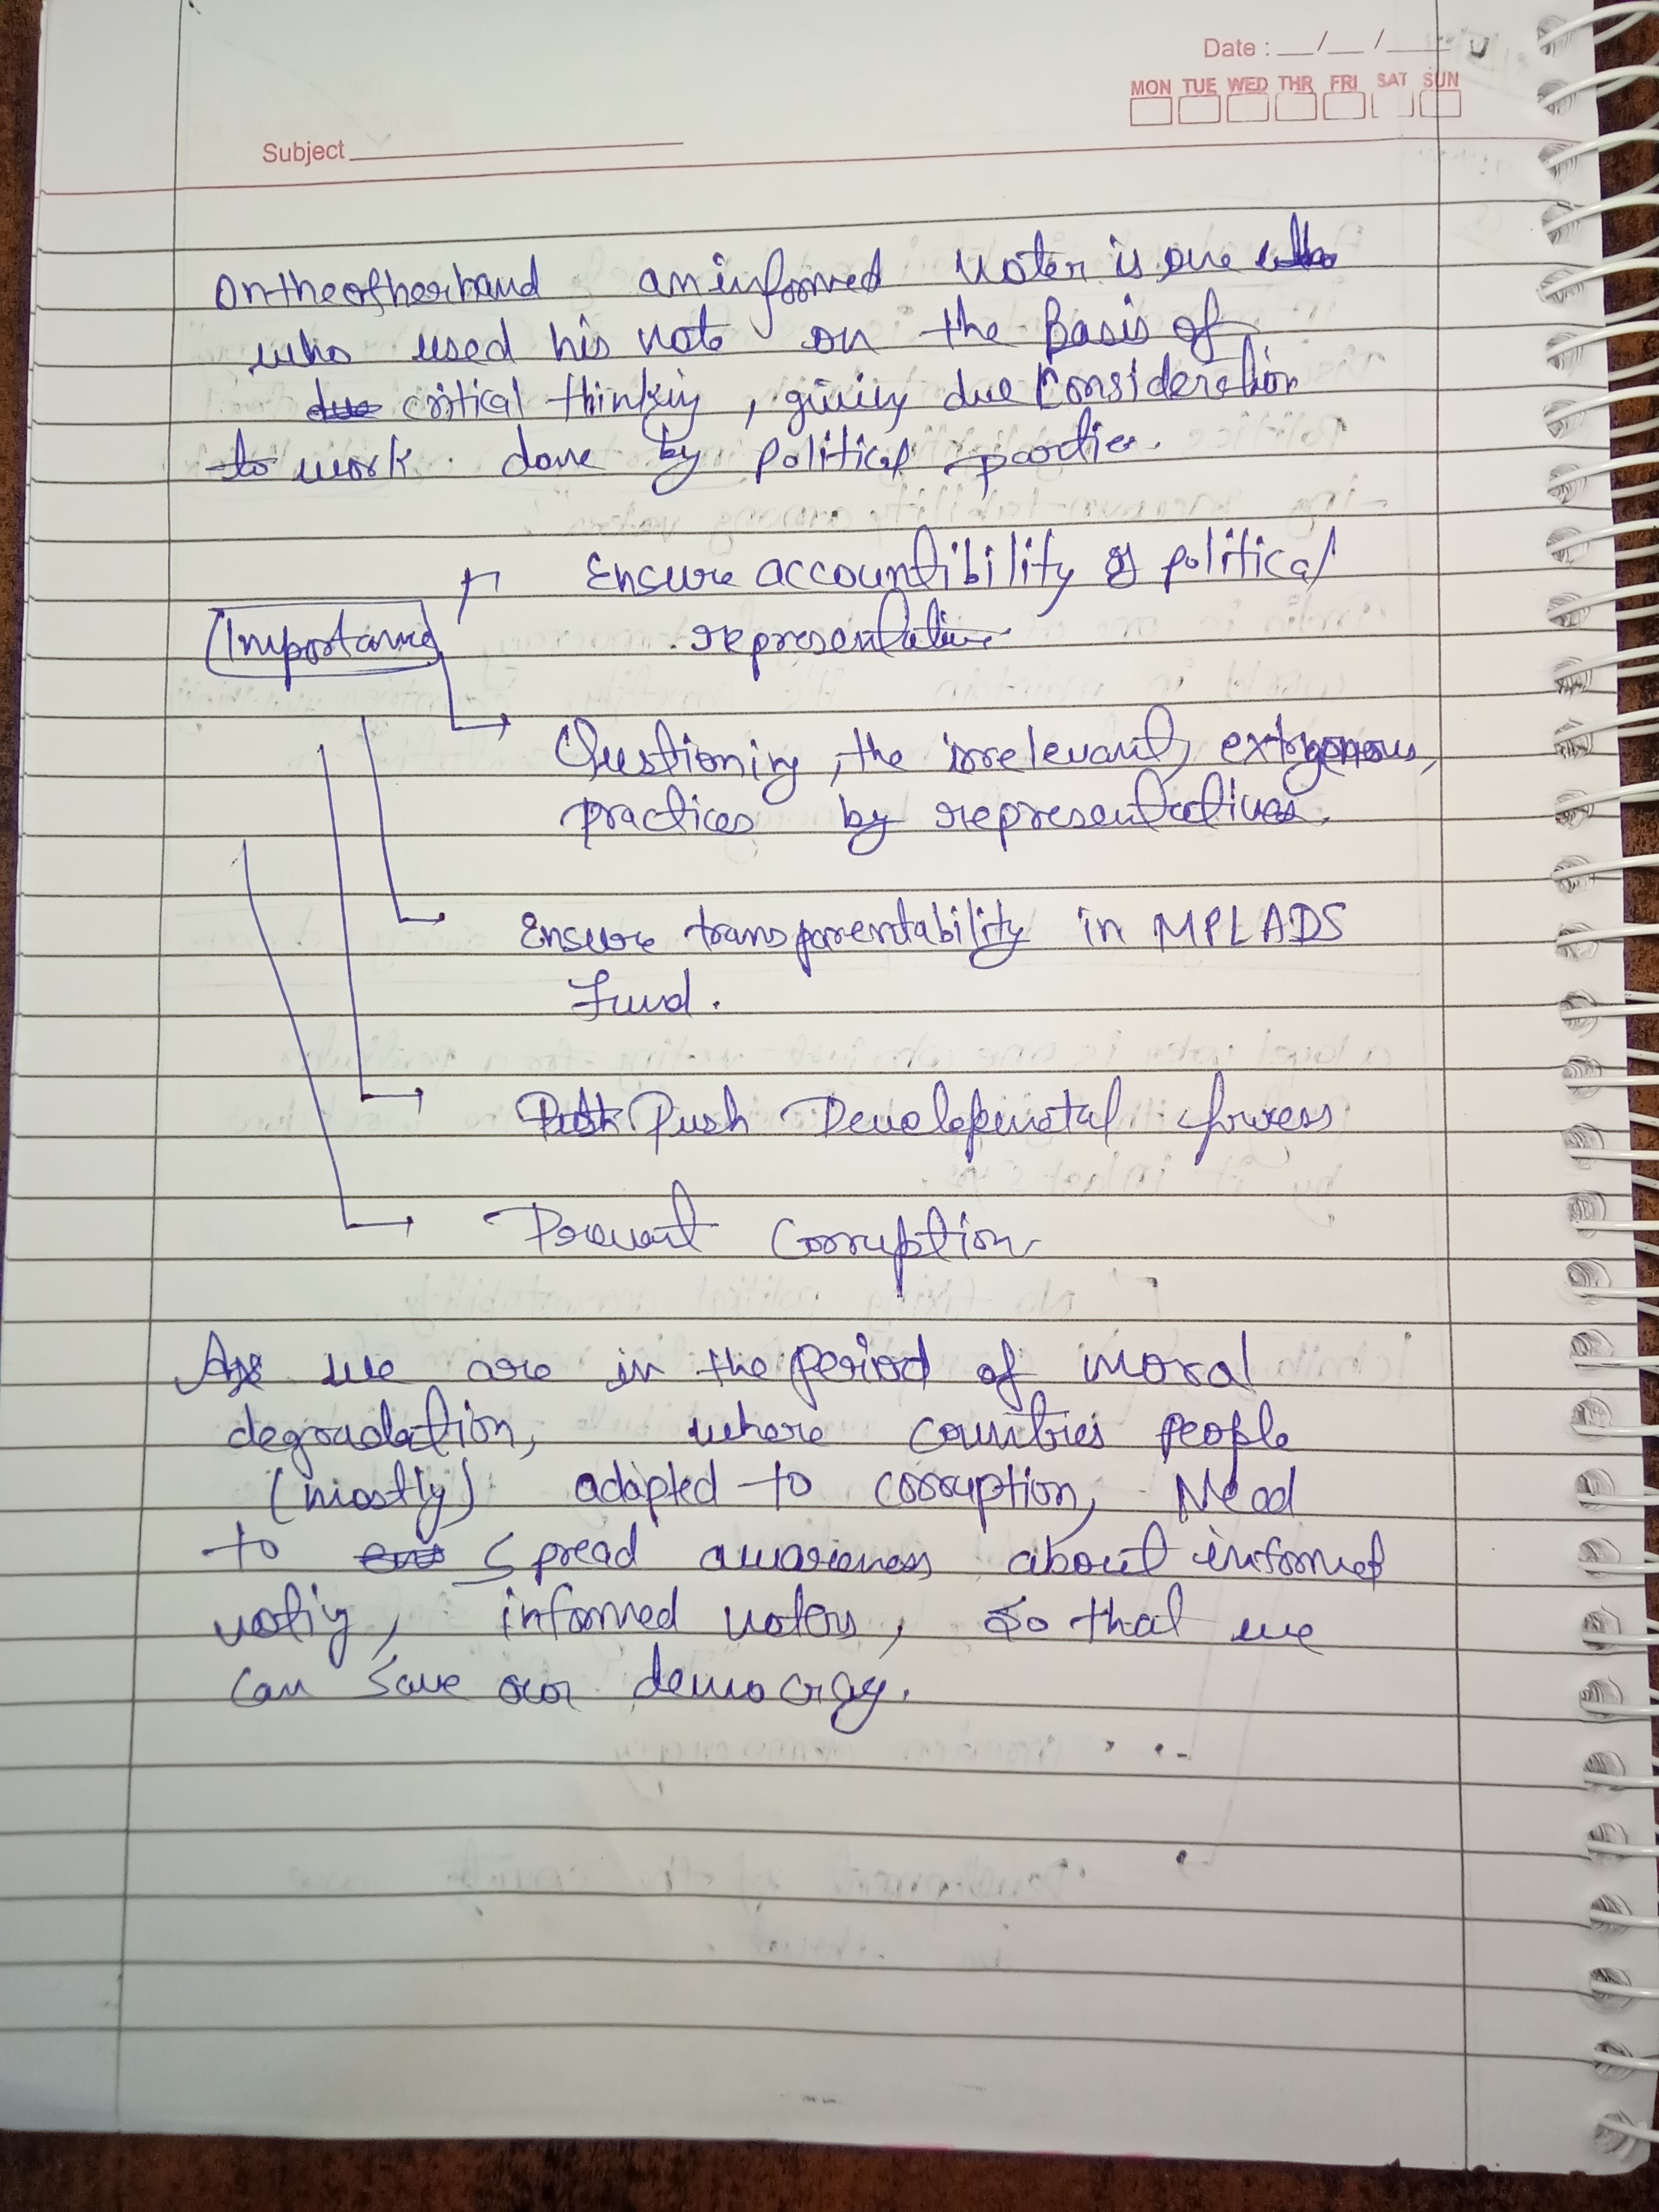 Date : __/__/____
MON TUE WED THR FRI SAT SUN
Subject
On the other hand an informed voter is one
who used his vote on the Basis of
critical thinking, giving due Consideration
to work done by political parties.
Ensure accountibility of political
representative
Importance
Questioning, the irrelevant,
practices by representatives.
Ensure transparentability in MPLADS
Fund.
Push Developmetal
Prevent Corruption
As we are in the period of moral
degradation, where countries people
(mostly) adapted to corruption, Need
to Spread awareness about informed
voting, informed voters, so that we
can save our democracy.